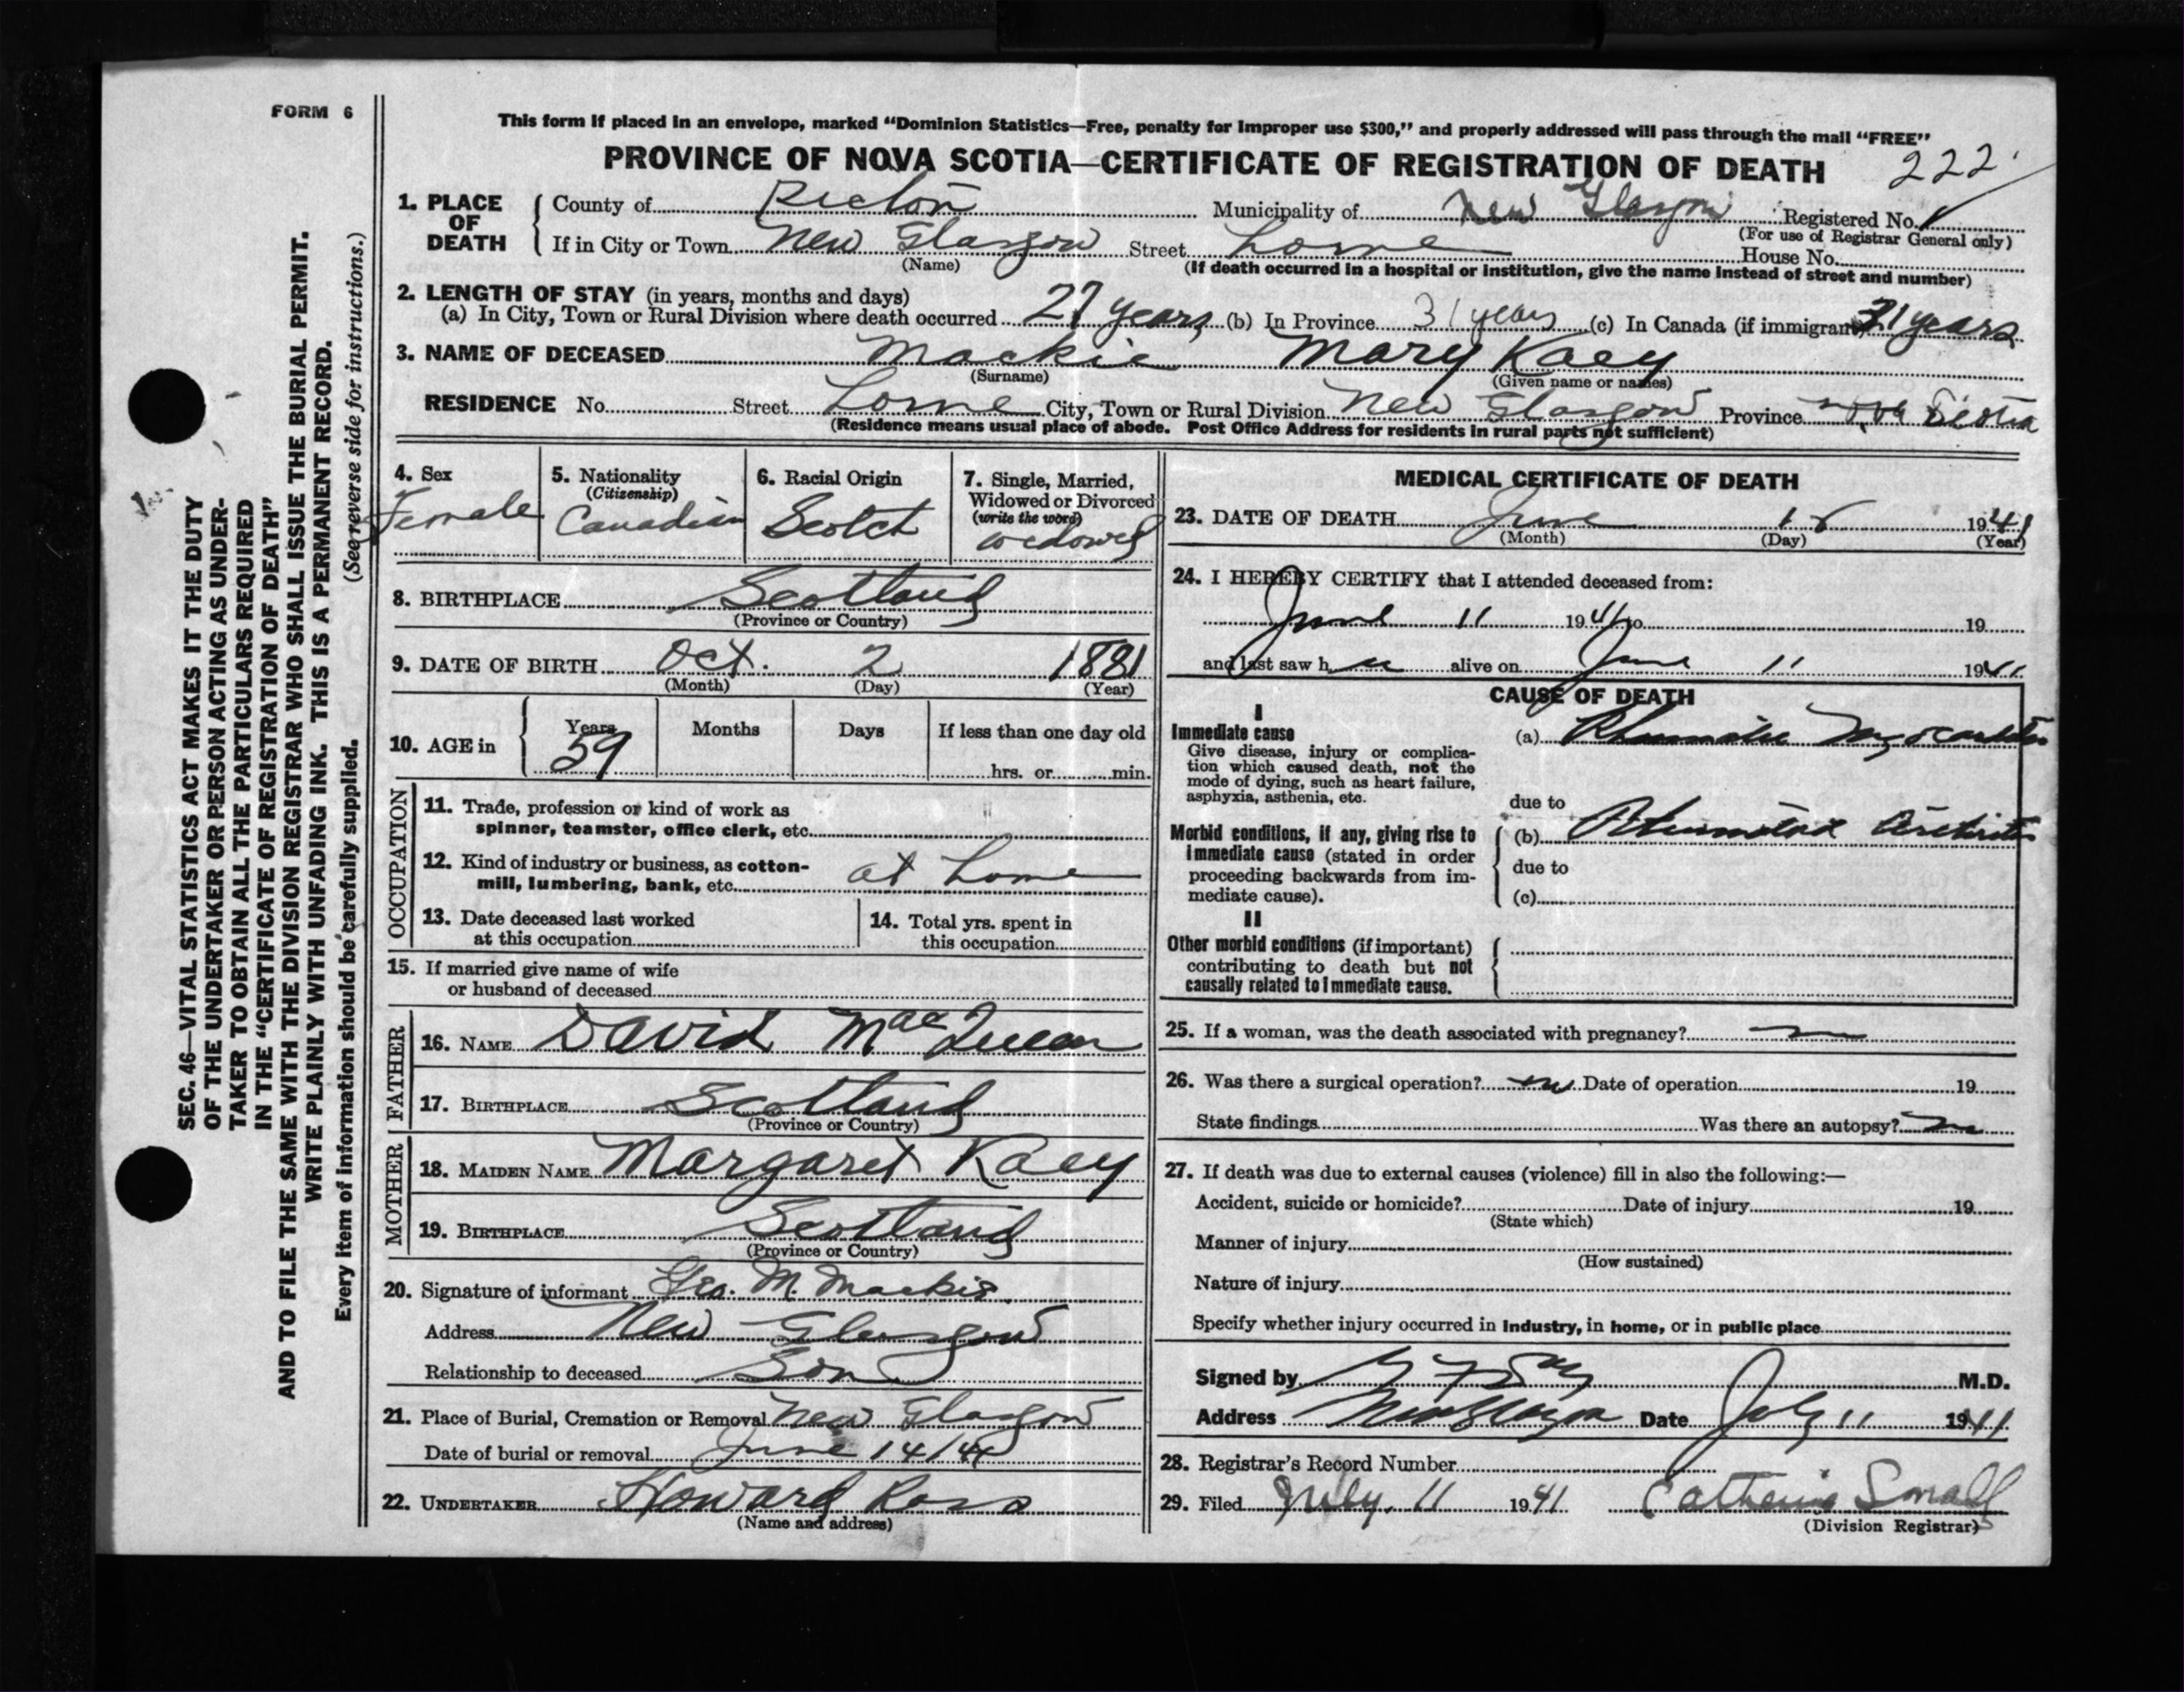 FORM 6
This form if placed in an envelope, marked "Dominion Statistics—Free, penalty for improper use $300," and properly addressed will pass through the mail "FREE"
PROVINCE OF NOVA SCOTIA—CERTIFICATE OF REGISTRATION OF DEATH 222
1. PLACE OF DEATH { County of Pictou Municipality of New Glasgow Registered No.
(For use of Registrar General only)
If in City or Town New Glasgow Street Lorne House No.
(Name) (If death occurred in a hospital or institution, give the name instead of street and number)
2. LENGTH OF STAY (in years, months and days)
(a) In City, Town or Rural Division where death occurred 27 years (b) In Province 31 years (c) In Canada (if immigrant) 31 years
3. NAME OF DECEASED Mackie Mary Kaey
(Surname) (Given name or names)
RESIDENCE No. Street Lorne City, Town or Rural Division New Glasgow Province Nova Scotia
(Residence means usual place of abode. Post Office Address for residents in rural parts not sufficient)
4. Sex Female
5. Nationality (Citizenship) Canadian
6. Racial Origin Scotch
7. Single, Married, Widowed or Divorced (write the word) widowed
8. BIRTHPLACE Scotland
(Province or Country)
9. DATE OF BIRTH Oct. 2 1881
(Month) (Day) (Year)
10. AGE in { Years 59 Months Days If less than one day old
hrs. or min.
OCCUPATION
11. Trade, profession or kind of work as
spinner, teamster, office clerk, etc.
12. Kind of industry or business, as cotton-
mill, lumbering, bank, etc. at home
13. Date deceased last worked
at this occupation
14. Total yrs. spent in
this occupation
15. If married give name of wife
or husband of deceased
FATHER
16. NAME David MacQueen
17. BIRTHPLACE Scotland
(Province or Country)
MOTHER
18. MAIDEN NAME Margaret Kaey
19. BIRTHPLACE Scotland
(Province or Country)
20. Signature of informant Geo. M. Mackie
Address New Glasgow
Relationship to deceased Son
21. Place of Burial, Cremation or Removal New Glasgow
Date of burial or removal June 14/41
22. UNDERTAKER Howard Ross
(Name and address)
MEDICAL CERTIFICATE OF DEATH
23. DATE OF DEATH June 1941
(Month) (Day) (Year)
24. I HEREBY CERTIFY that I attended deceased from:
June 11 1941 to 19
and last saw her alive on June 11 1941
CAUSE OF DEATH
I
Immediate cause (a) Rheumatic Myocarditis
Give disease, injury or complica-
tion which caused death, not the
mode of dying, such as heart failure,
asphyxia, asthenia, etc.
due to
Morbid conditions, if any, giving rise to { (b) Rheumatoid Arthritis
immediate cause (stated in order
proceeding backwards from im- due to
mediate cause). (c)
II
Other morbid conditions (if important)
contributing to death but not
causally related to immediate cause.
25. If a woman, was the death associated with pregnancy? no
26. Was there a surgical operation? no Date of operation 19
State findings Was there an autopsy? no
27. If death was due to external causes (violence) fill in also the following:—
Accident, suicide or homicide? Date of injury 19
(State which)
Manner of injury
(How sustained)
Nature of injury
Specify whether injury occurred in industry, in home, or in public place
Signed by M.D.
Address New Glasgow Date July 11 1941
28. Registrar's Record Number
29. Filed July. 11 1941 Catherine Small
(Division Registrar)
SEC. 46—VITAL STATISTICS ACT MAKES IT THE DUTY
OF THE UNDERTAKER OR PERSON ACTING AS UNDER-
TAKER TO OBTAIN ALL THE PARTICULARS REQUIRED
IN THE "CERTIFICATE OF REGISTRATION OF DEATH"
AND TO FILE THE SAME WITH THE DIVISION REGISTRAR WHO SHALL ISSUE THE BURIAL PERMIT.
WRITE PLAINLY WITH UNFADING INK. THIS IS A PERMANENT RECORD.
Every item of information should be carefully supplied. (See reverse side for instructions.)